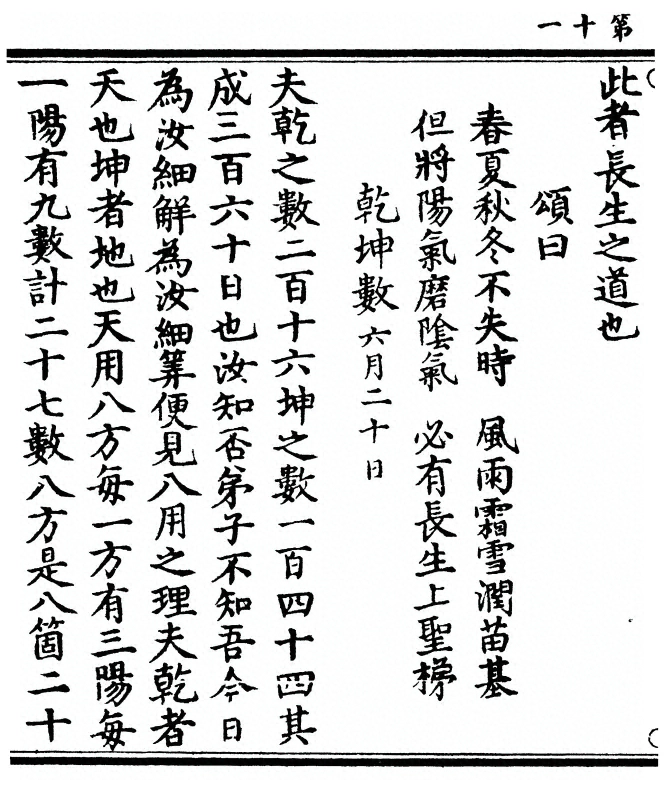 第十一
此者長生之道也
頌曰
春夏秋冬不失時　風雨霜雪潤苗基
但將陽氣磨陰氣　必有長生上聖梯
乾坤數六月二十日
夫乾之數二百十六坤之數一百四十四其
成三百六十日也汝知否弟子不知吾今日
為汝細解為汝細筭便見八用之理夫乾者
天也坤者地也天用八方每一方有三陽每
一陽有九數計二十七數八方是八箇二十